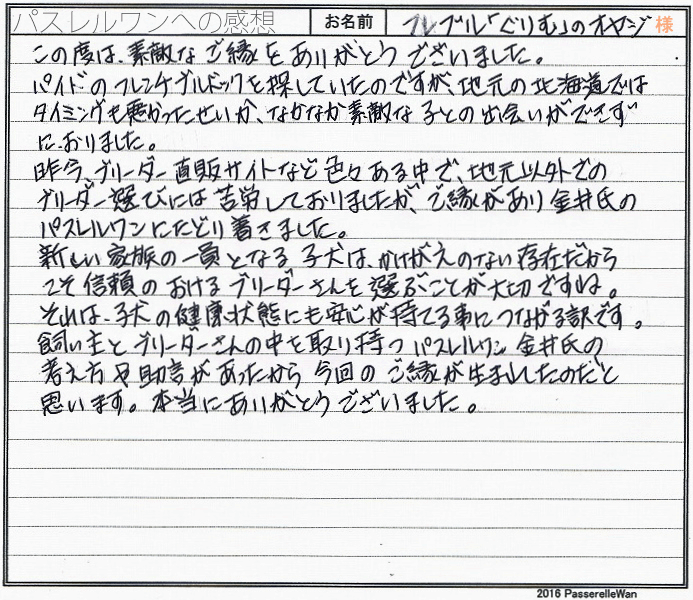 パスレルワンへの感想 お名前 フレブル「ぐりむ」のオヤジ 様
この度は、素敵なご縁をありがとうございました。
パイドのフレンチブルドックを探していたのですが、地元の北海道では
タイミングも悪かったせいか、なかなか素敵な子との出会いができず
におりました。
昨今、ブリーダー直販サイトなど色々ある中で、地元以外での
ブリーダー選びには苦労しておりましたが、ご縁があり金井氏の
パスレルワンにたどり着きました。
新しい家族の一員となる子犬は、かけがえのない存在だから
こそ信頼のおけるブリーダーさんを選ぶことが大切ですね。
それは、子犬の健康状態にも安心が持てる事につながる訳です。
飼い主とブリーダーさんの中を取り持つパスレルワン金井氏の
考え方や助言があったから今回のご縁が生ましたのだと
思います。本当にありがとうございました。
2016 PasserelleWan